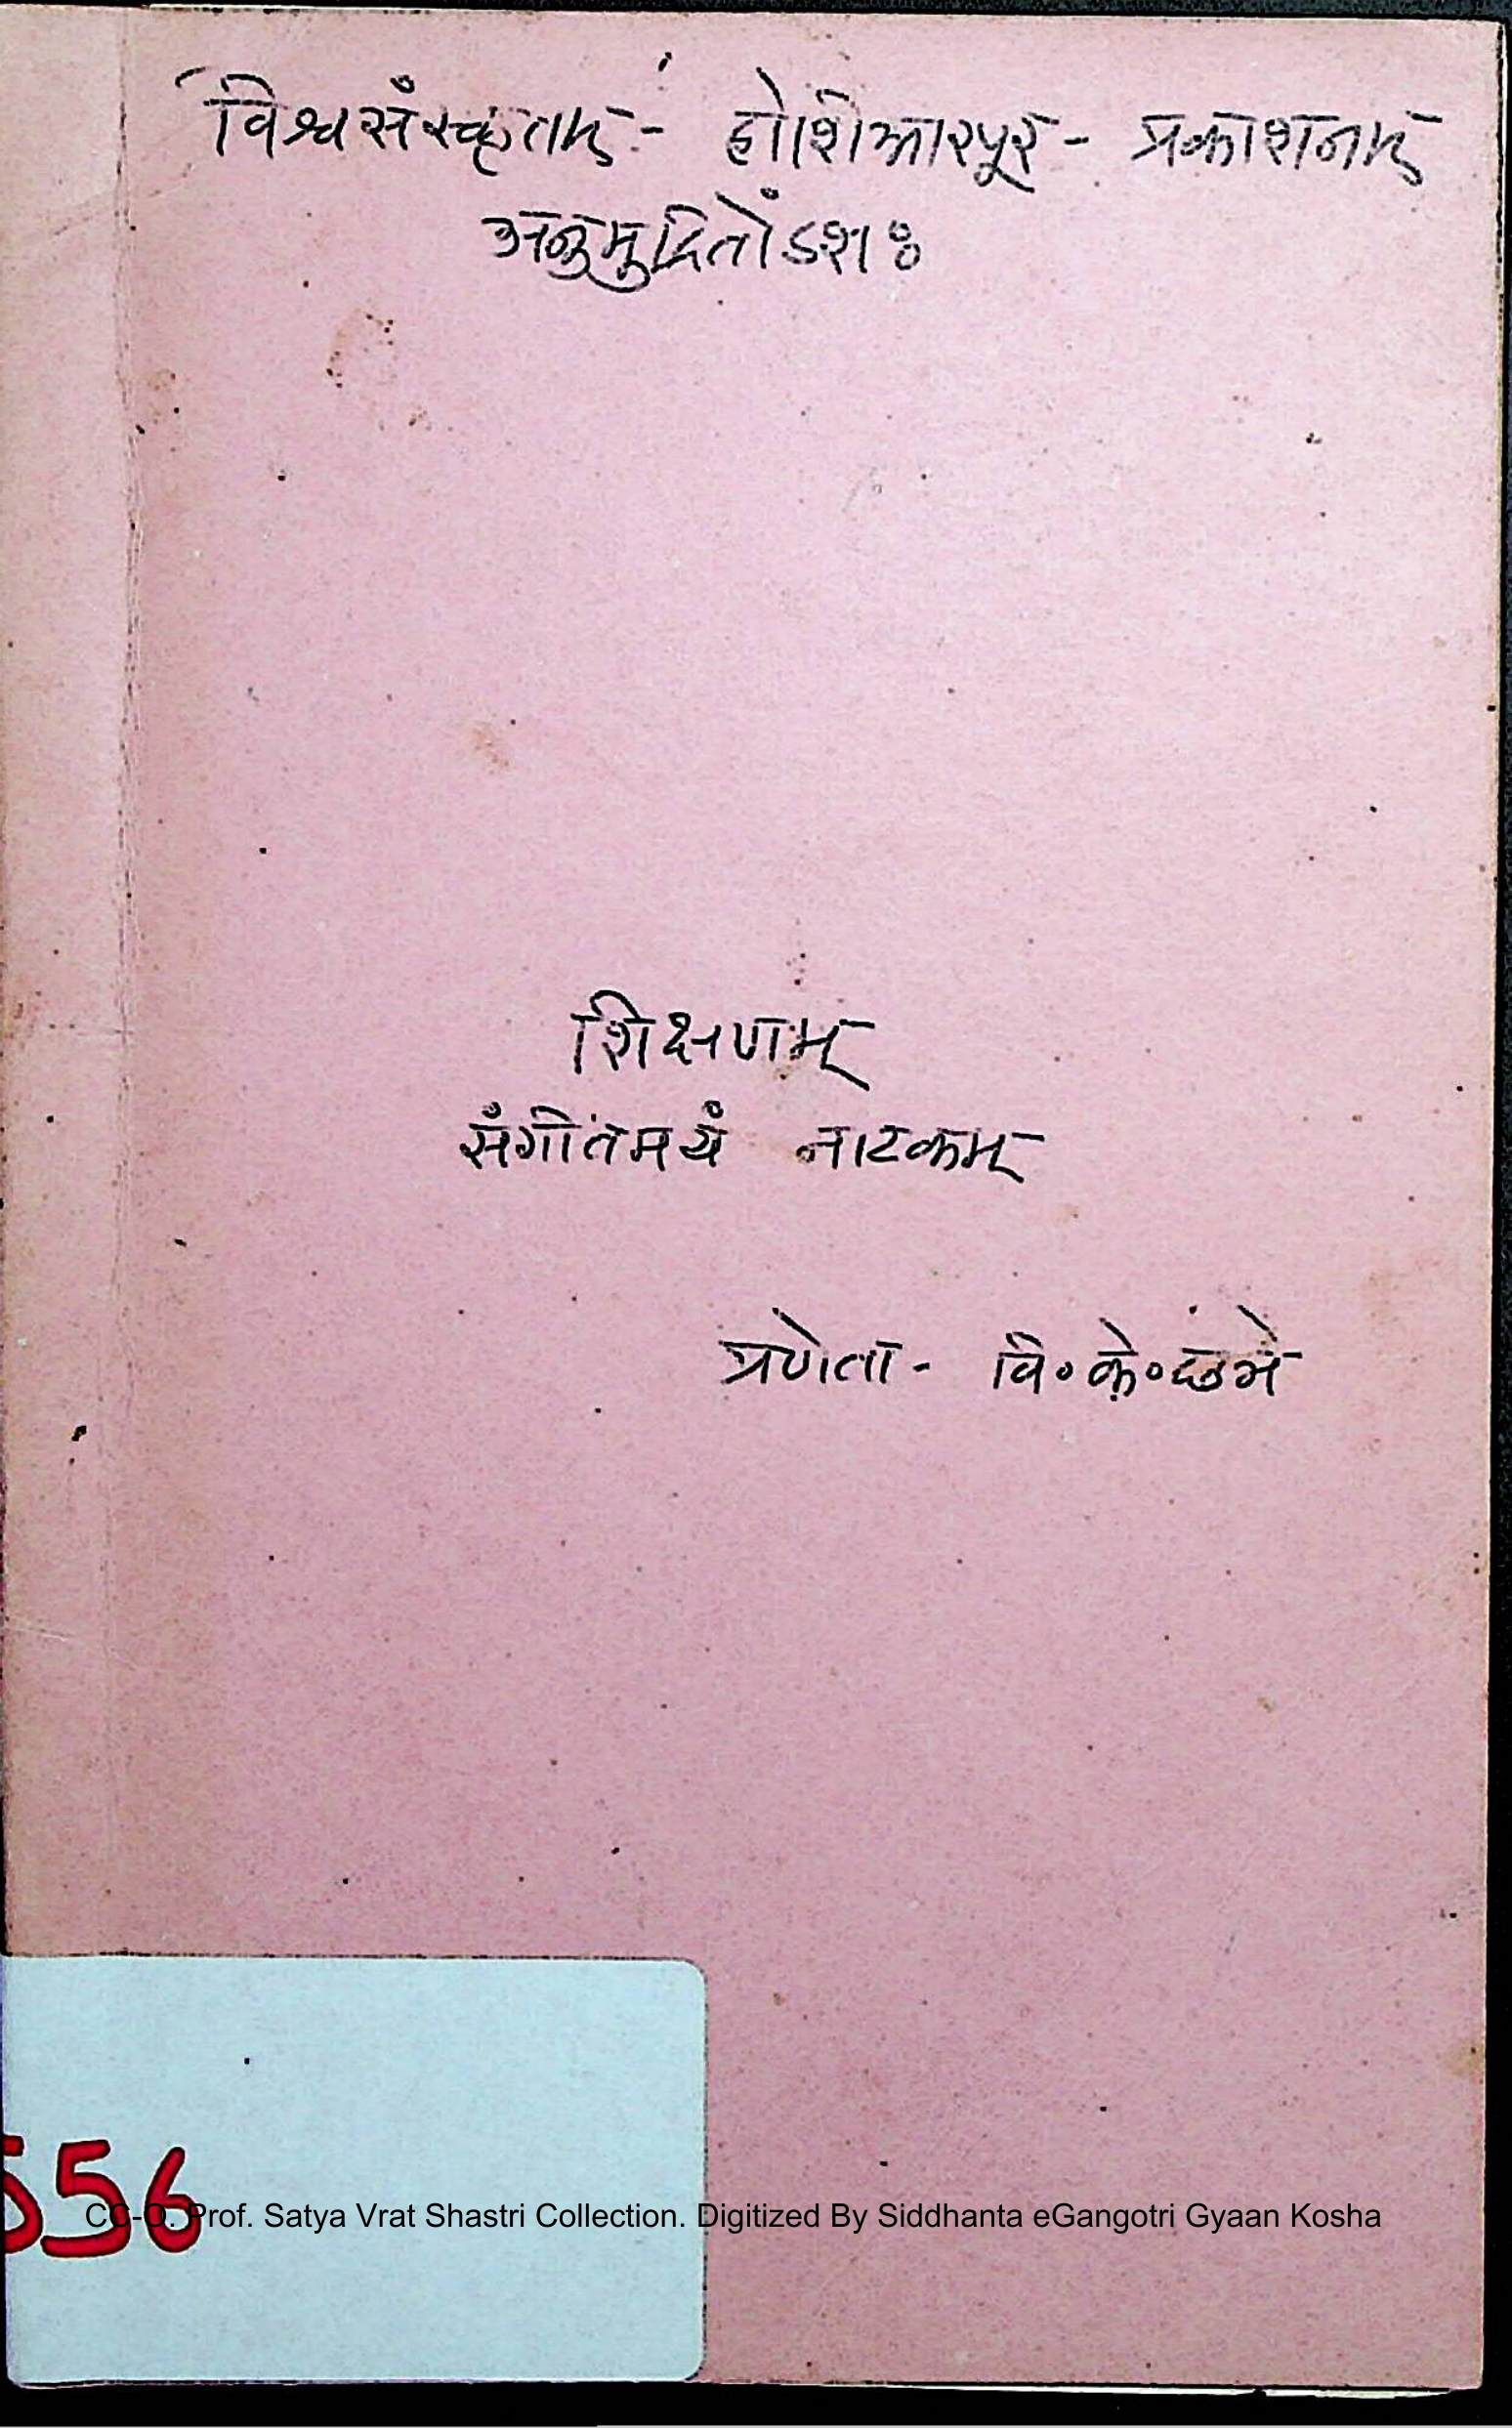 विश्वसंस्कृतम् - होशिआरपूर - प्रकाशनम्
अनुमुद्रितोंऽशः
शिक्षणम्
संगीतमयं नाटकम्
प्रणेता - वि॰ के॰ छत्रे
556
CC-O. Prof. Satya Vrat Shastri Collection. Digitized By Siddhanta eGangotri Gyaan Kosha